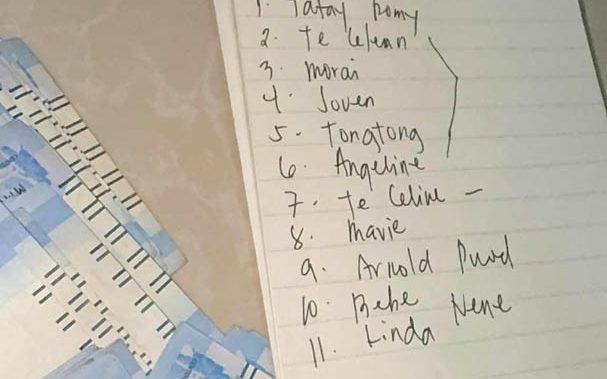 1. Tatay Romy
2. Te Lelean
3. morai
4. Joven
5. Tongtong
6. Angeline
7. Te Celine -
8. mavie
9. Arnold
10. Bebe Nene
11. Linda